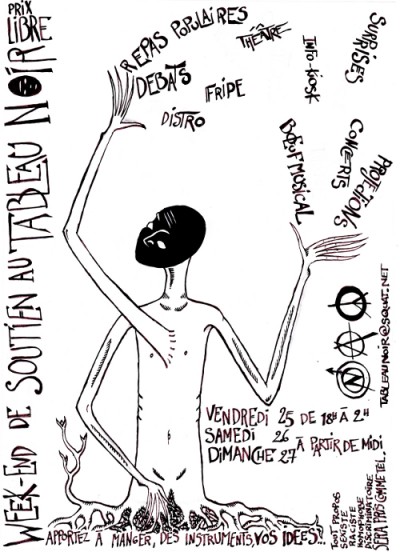 PRIX
LIBRE
WEEK-END DE SOUTIEN AU TABLEAU NOIR
REPAS POPULAIRES
THÉÂTRE
DEBATS
FRIPE
DISTRO
INFO-KIOSK
SURPRISES
BŒUF MUSICAL
CONCERTS
PROJECTIONS
TABLEAUNOIR@SQUAT.NET
VENDREDI 25 DE 18H À 2H
SAMEDI 26
DIMANCHE 27 À PARTIR DE MIDI
TOUT PROPOS
SEXISTE
RACISTE
HOMOPHOBE
DISCRIMINATOIRE
SERA PRIS COMME TEL.
APPORTEZ À MANGER, DES INSTRUMENTS, VOS IDÉES!!